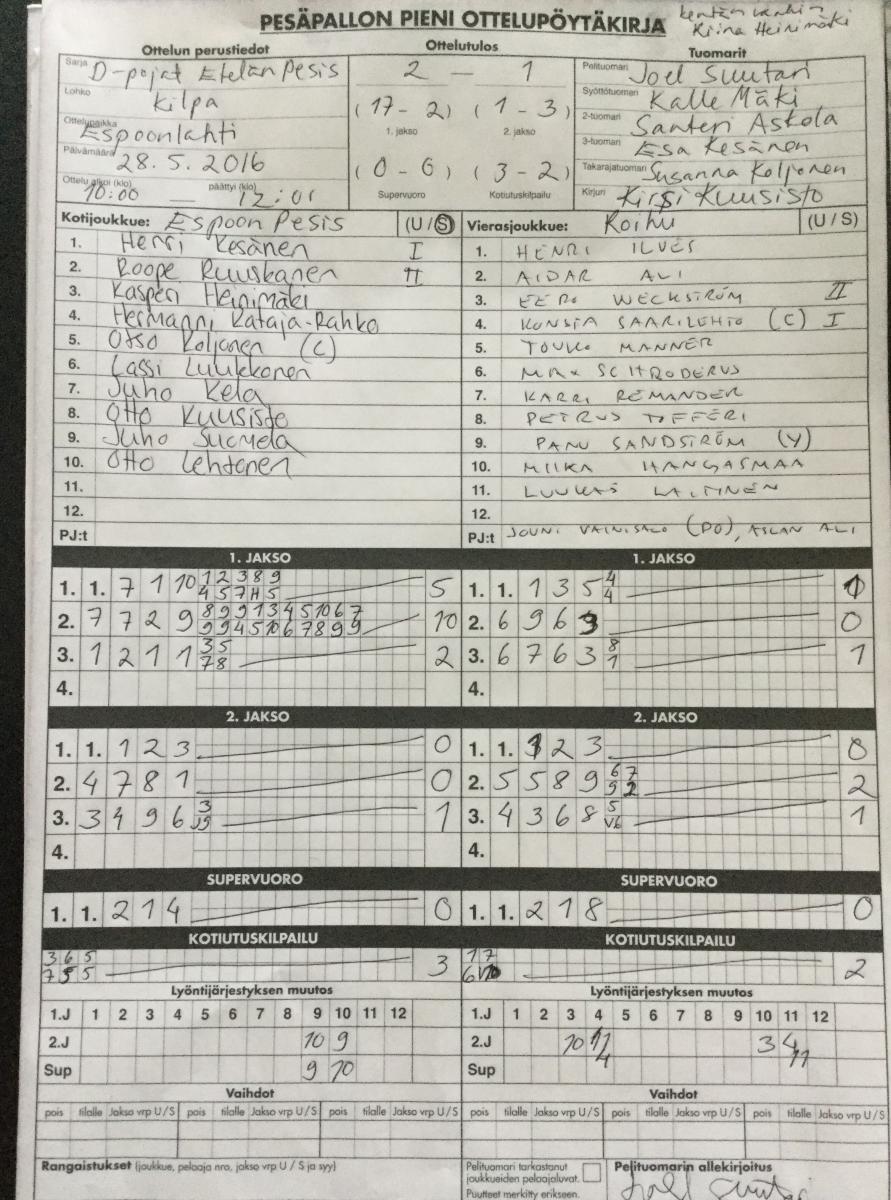 PESÄPALLON PIENI OTTELUPÖYTÄKIRJA
Kiina Heinimäki
Ottelun perustiedot
Ottelutulos
Tuomarit
Sarja D-pojat Etelän Pesis
Lohko Kilpa
Ottelupaikka Espoonlahti
Päivämäärä 28.5.2016
Ottelu alkoi (klo) 10:00 — päättyi (klo) 12:01
2 — 1
(17 - 2) (1 - 3)
1. jakso 2. jakso
(0 - 0) (3 - 2)
Supervuoro Kotiutuskilpailu
Pelituomari Joel Suutari
Syöttötuomari Kalle Mäki
2-tuomari Santeri Askola
3-tuomari Esa Kesänen
Takarajatuomari Susanna Koljonen
Kirjuri Kirsi Kuusisto
Kotijoukkue: Espoon Pesis (U / S)
1. Henri Kesänen I
2. Roope Ruuskanen II
3. Kasperi Heinimäki
4. Hermanni Kataja-Rahko
5. Otso Koljonen (C)
6. Lassi Luukkonen
7. Juho Kela
8. Otto Kuusisto
9. Juho Suomela
10. Otto Lehtonen
11.
12.
PJ:t
Vierasjoukkue: Roihu (U / S)
1. HENRI ILVES
2. AIDAR ALI
3. EERO WECKSTRÖM II
4. KONSTA SAARILEHTO (C) I
5. TOUKO MANNER
6. MAX SCHRODERUS
7. KARRI REMANDER
8. PETRUS TOFFERI
9. PANU SANDSTRÖM (V)
10. MIIKA HANGASMAA
11. LUUKAS LAITINEN
12.
PJ:t JOUNI VAINISALO (PO), ASLAN ALI
1. JAKSO
1. 1. 7 1 10 1 2 3 8 9 5
4 5 7 H 5
2. 7 7 2 9 8 9 9 1 3 4 5 10 6 7 10
9 9 4 5 10 6 7 8 9 9
3. 1 2 1 1 3 5 2
7 8
4.
1. JAKSO
1. 1. 1 3 5 4 1
4
2. 6 9 6 9 0
3. 6 7 6 3 8 1
1
4.
2. JAKSO
1. 1. 1 2 3 0
2. 4 7 8 1 0
3. 3 4 9 6 3 1
J9
4.
2. JAKSO
1. 1. 1 2 3 0
2. 5 5 8 9 6 7 2
9 2
3. 4 3 6 8 5 1
V6
4.
SUPERVUORO
1. 1. 2 1 4 0
SUPERVUORO
1. 1. 2 1 8 0
KOTIUTUSKILPAILU
3 6 5 3
7 5 5
KOTIUTUSKILPAILU
1 7 2
6
Lyöntijärjestyksen muutos
1.J 1 2 3 4 5 6 7 8 9 10 11 12
2.J 10 9
Sup 9 10
Lyöntijärjestyksen muutos
1.J 1 2 3 4 5 6 7 8 9 10 11 12
2.J 10 11 3 4
Sup 4 11
Vaihdot
pois tilalle Jakso vrp U / S pois tilalle Jakso vrp U / S pois tilalle Jakso vrp U / S
Vaihdot
pois tilalle Jakso vrp U / S pois tilalle Jakso vrp U / S pois tilalle Jakso vrp U / S
Rangaistukset (joukkue, pelaaja nro, jakso vrp U / S ja syy)
Pelituomari tarkastanut
joukkueiden pelaajaluvat.
Puutteet merkitty erikseen.
Pelituomarin allekirjoitus